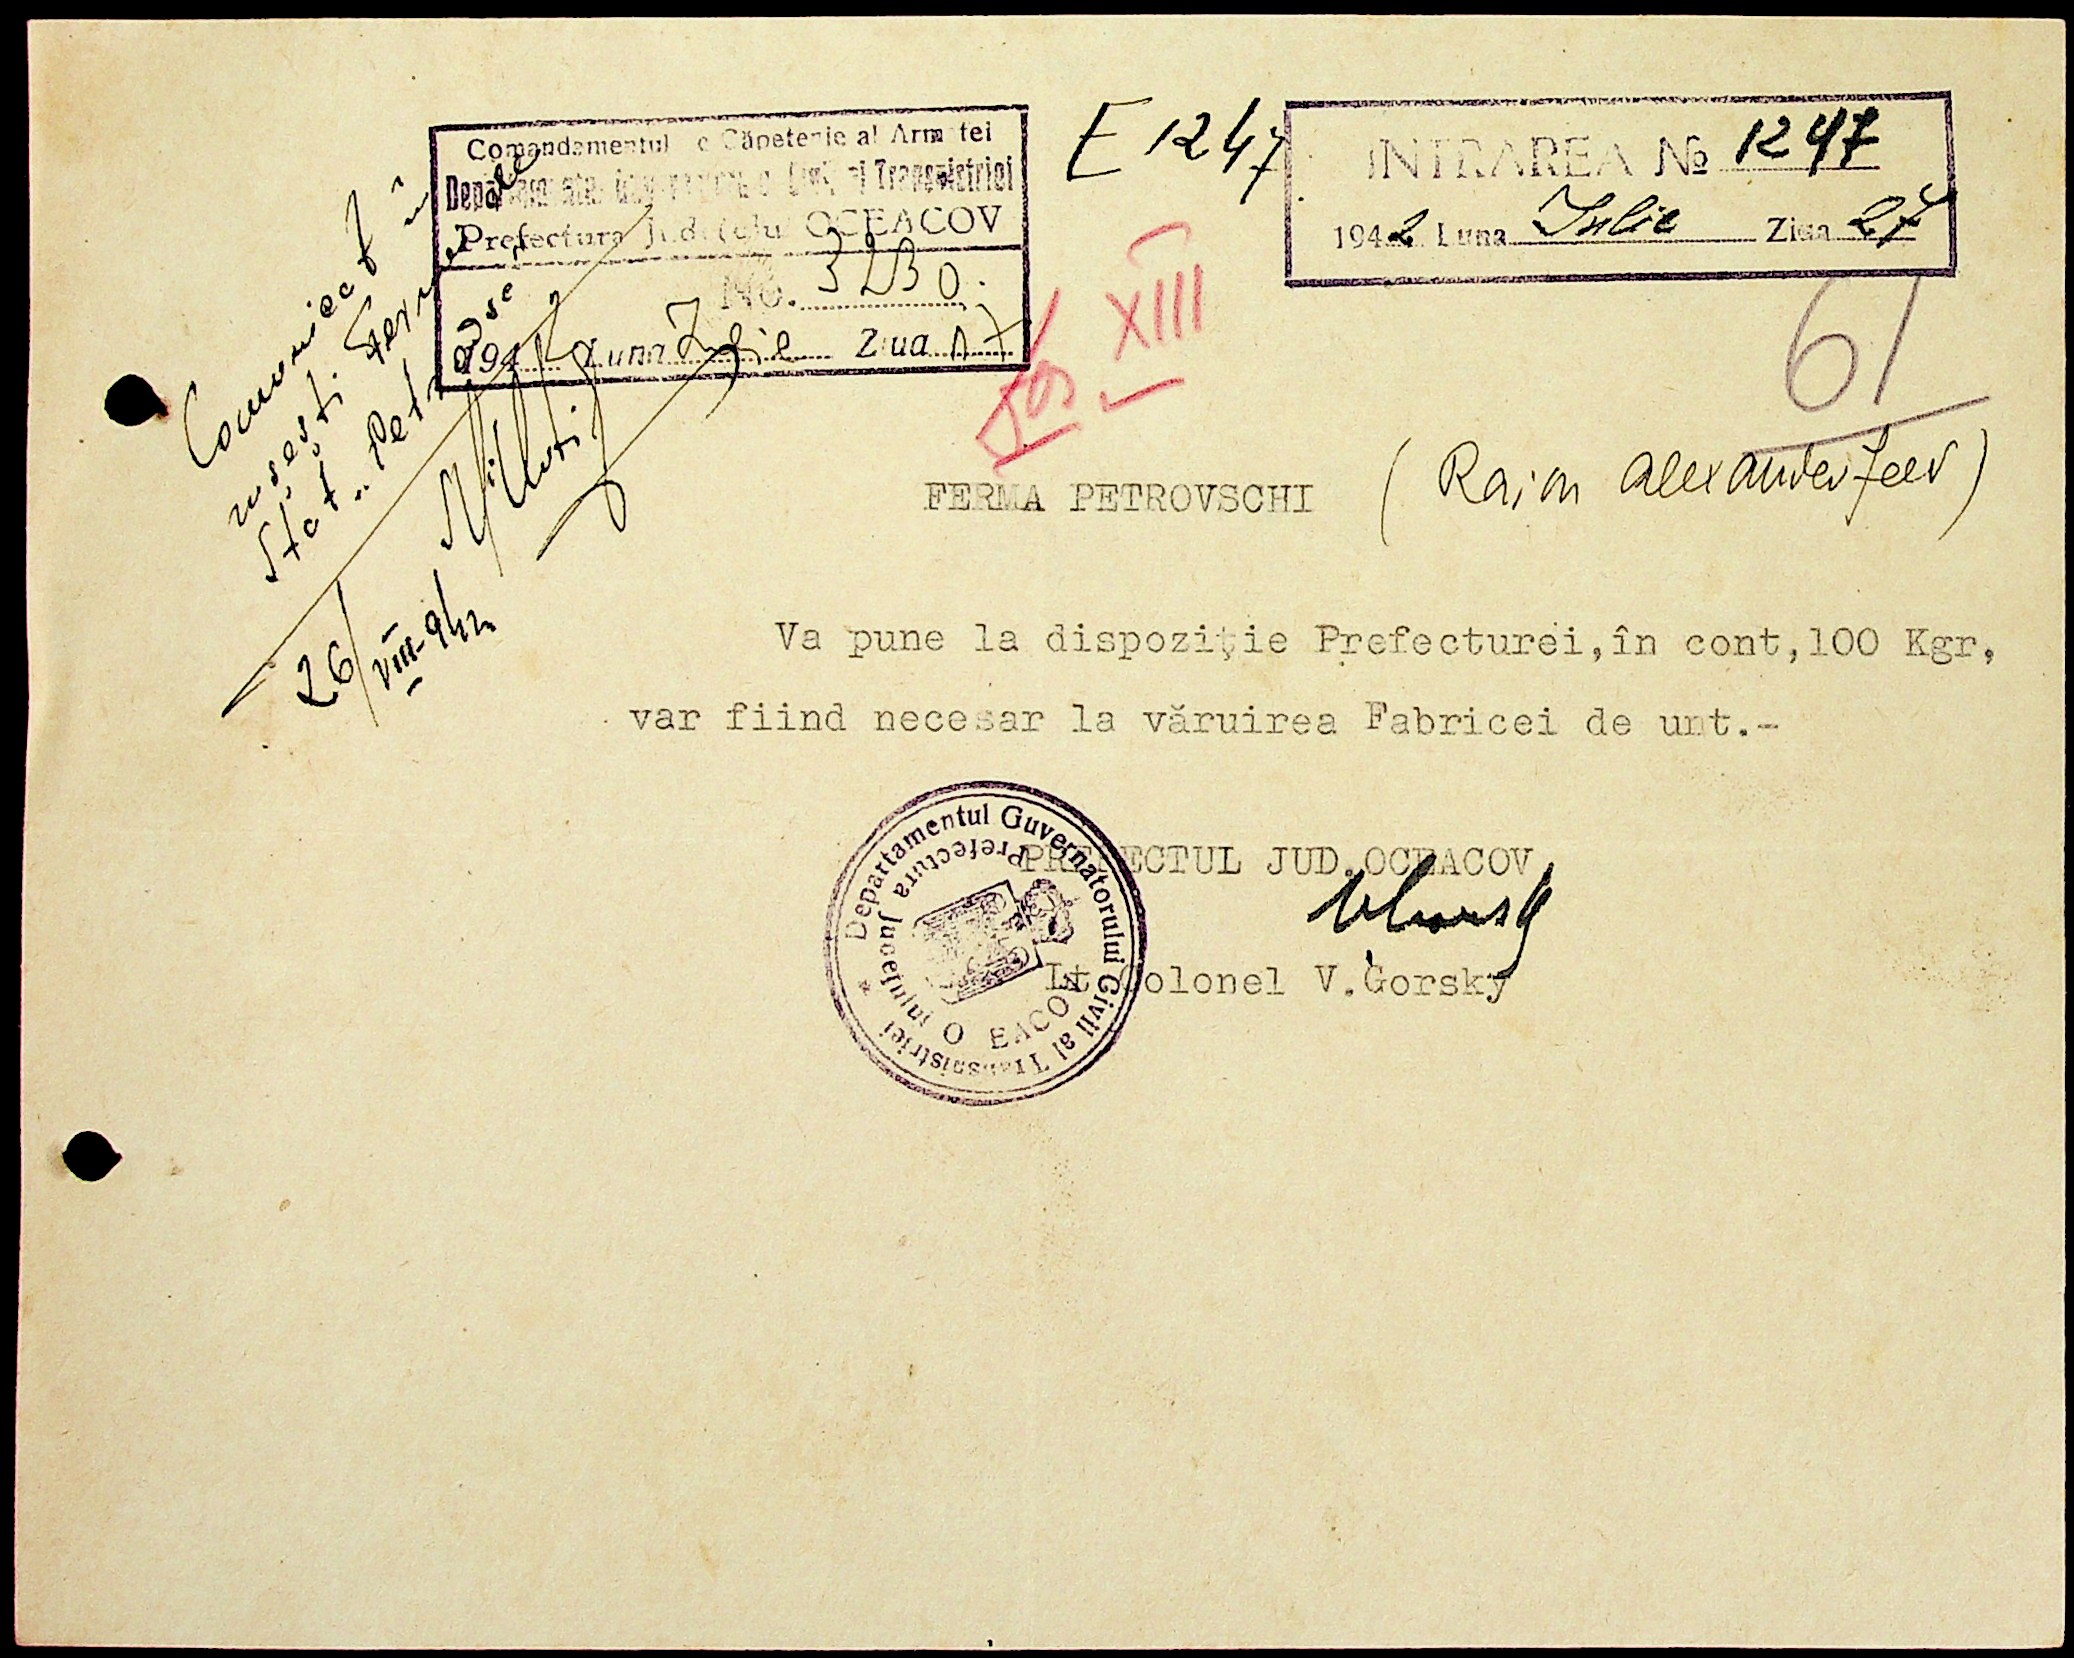 Comandamentul de Căpetenie al Armatei
Prefectura Județului OCEACOV
No. 3230.
1942 Luna Iulie Ziua 17
E 1247
INTRAREA № 1247
1942 Luna Iulie Ziua 27
XIII
61
Comunicat în
rusește Fermei de
Stat „Petr
26/VIII-942
FERMA PETROVSCHI (Raion Alexanderfeld)
Va pune la dispoziție Prefecturei,în cont,100 Kgr,
var fiind necesar la văruirea Fabricei de unt.-
PREFECTUL JUD.OCEACOV
Lt.Colonel V.Gorsky
Departamentul Guvernatorului Civil al Transnistriei
Prefectura Județului
O EACOV